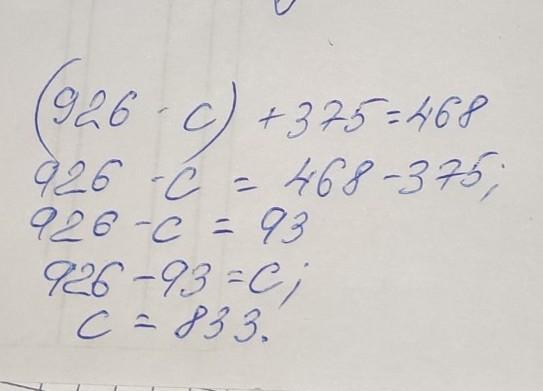 (926 - c) + 375 = 468
926 - c = 468 - 375;
926 - c = 93
926 - 93 = c;
c = 833.